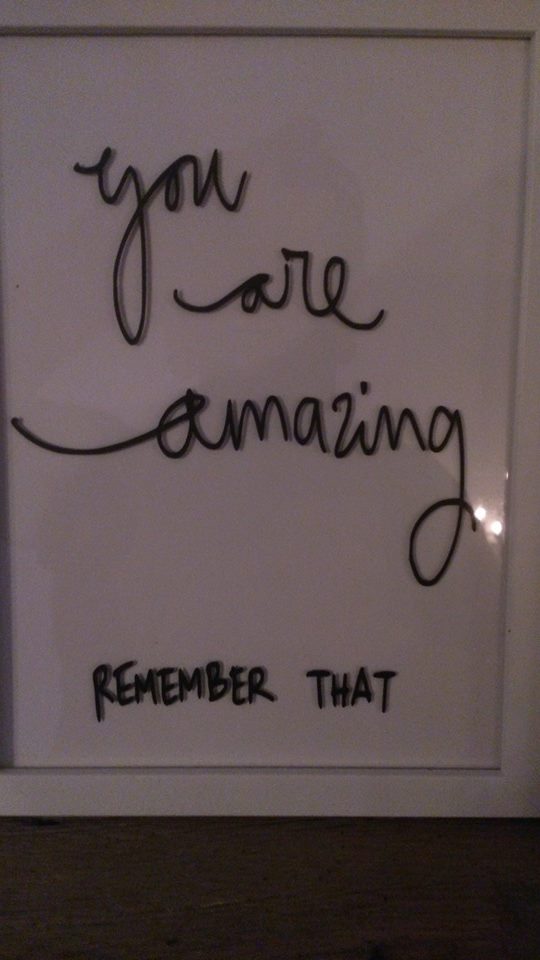 you
are
amazing
REMEMBER THAT